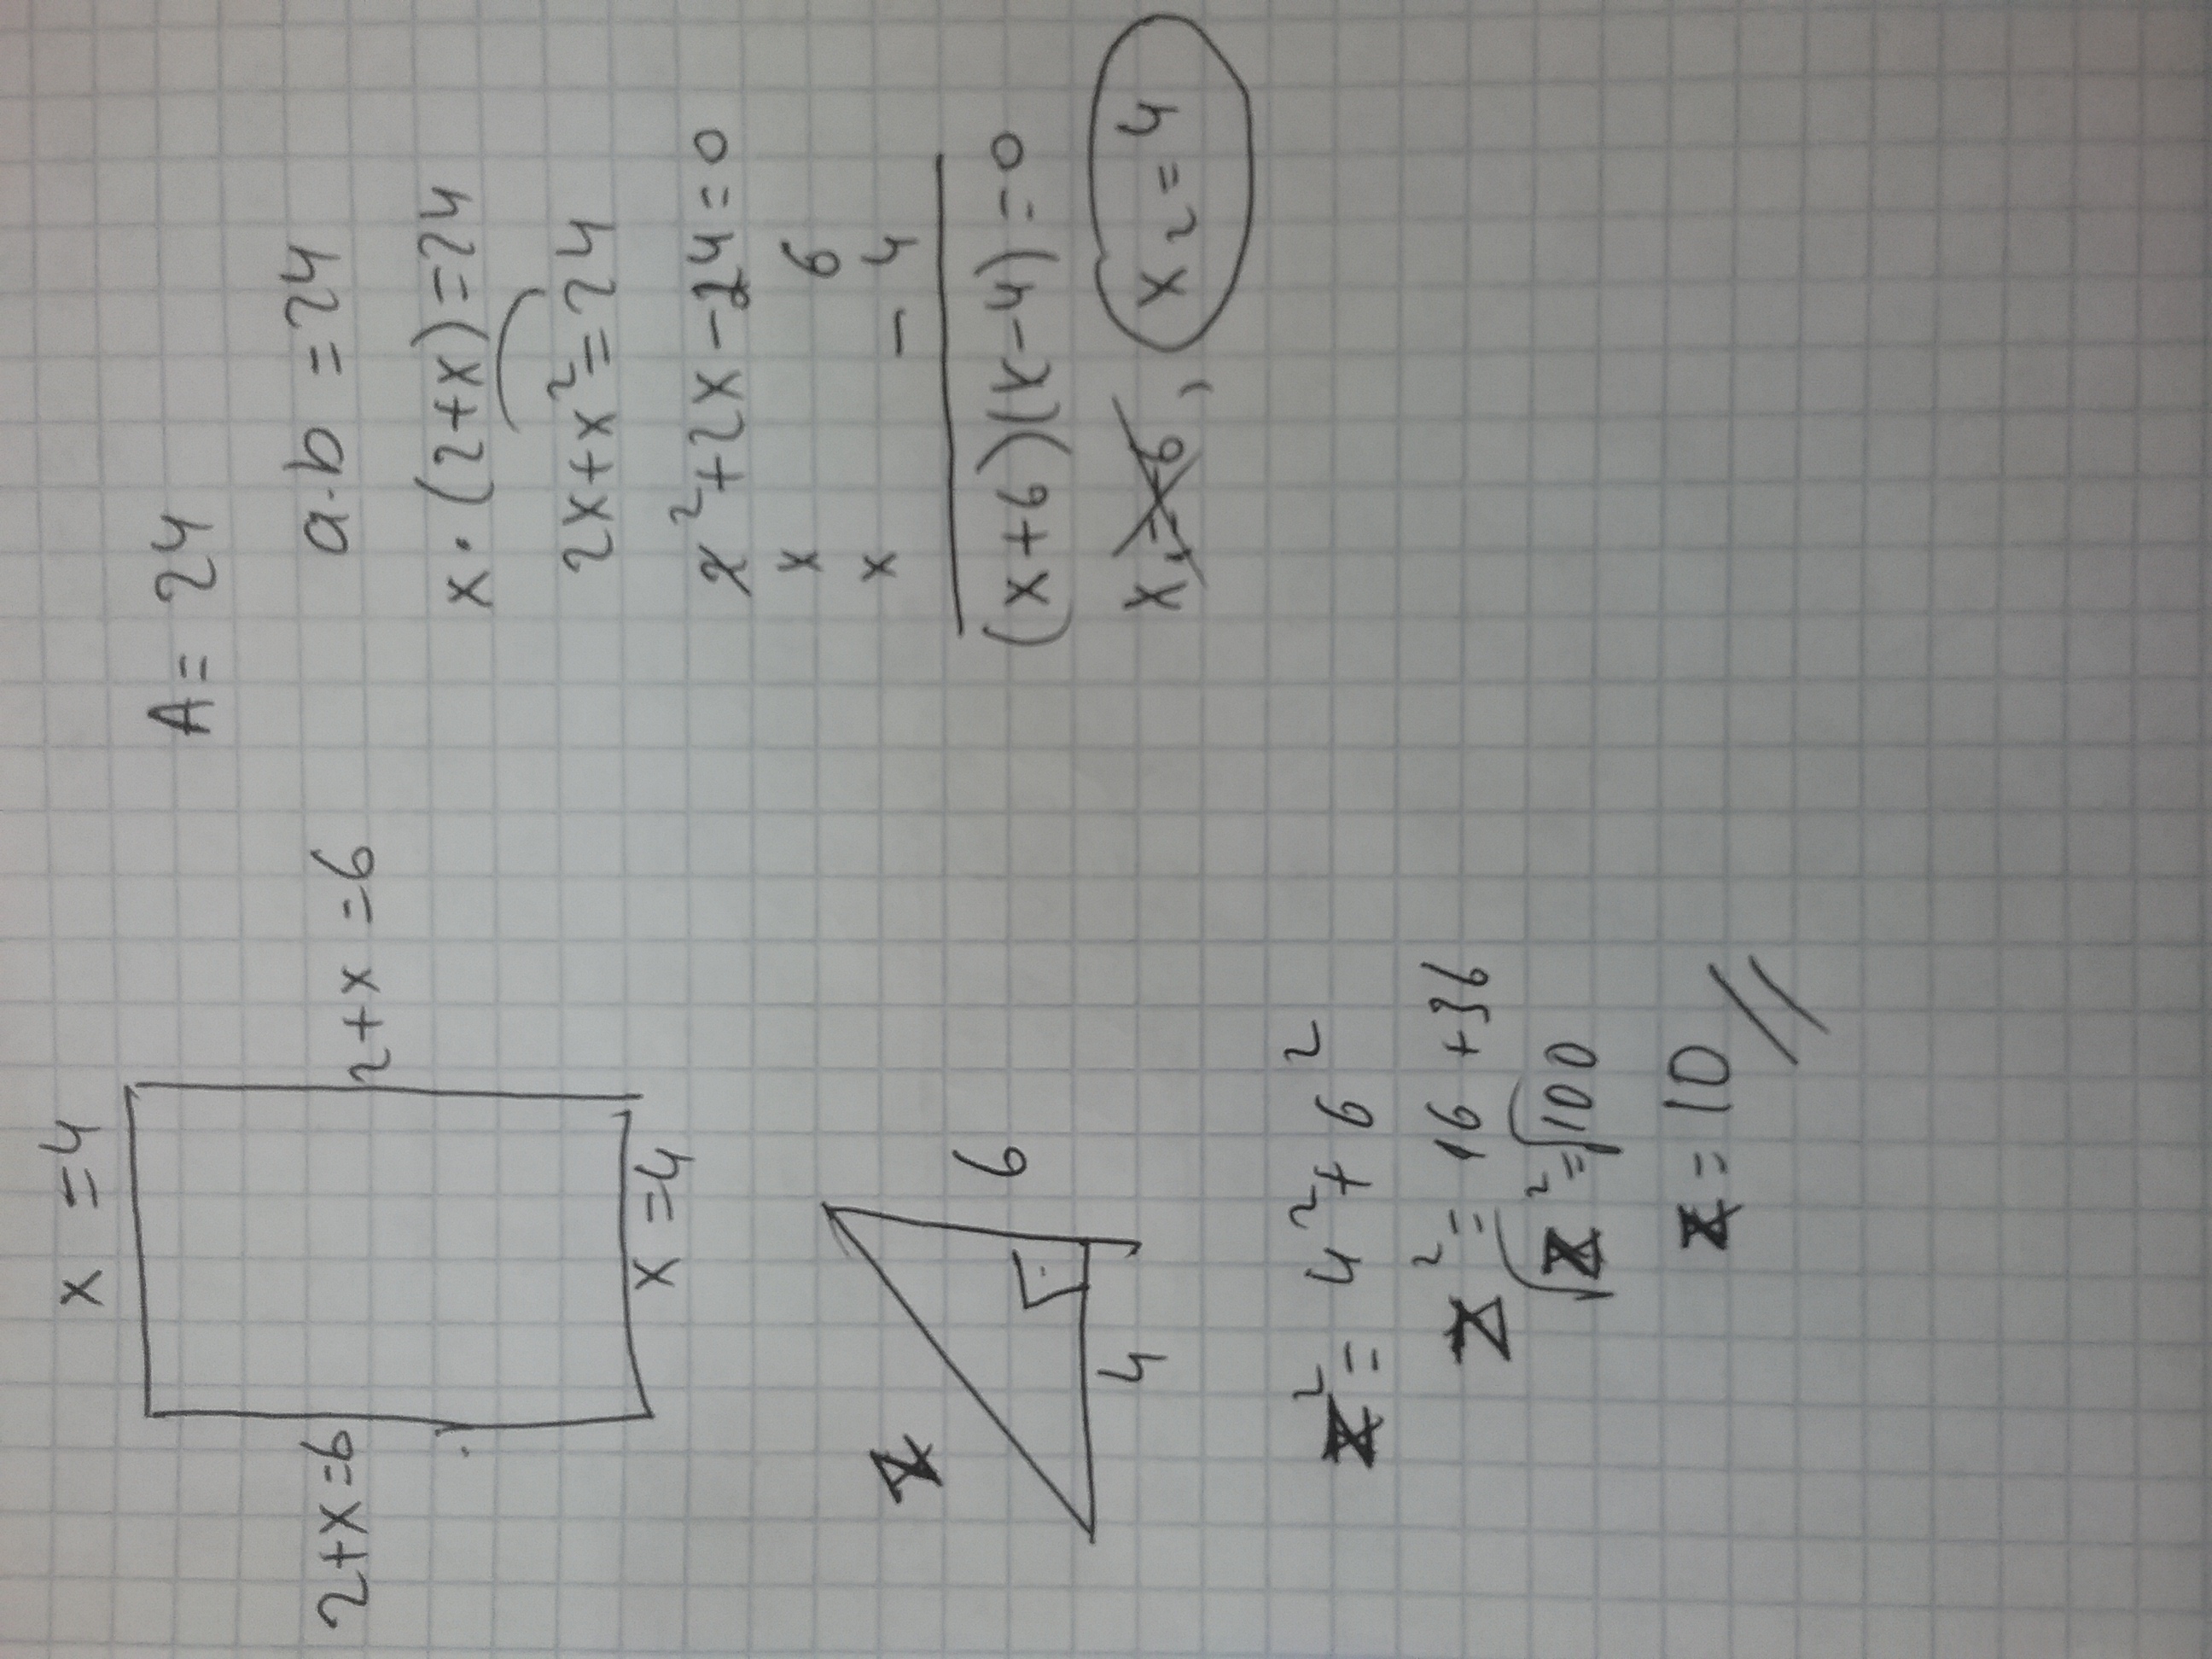 x = 4
2+x=6
2+x=6
x=4
A = 24
a·b = 24
x·(2+x)=24
2x+x²=24
x²+2x-24=0
x 6
x -4
(x+6)(x-4)=0
x₁=-6, x₂=4
z
6
4
z²=4²+6²
z²=16+36
√z²=√100
z=10